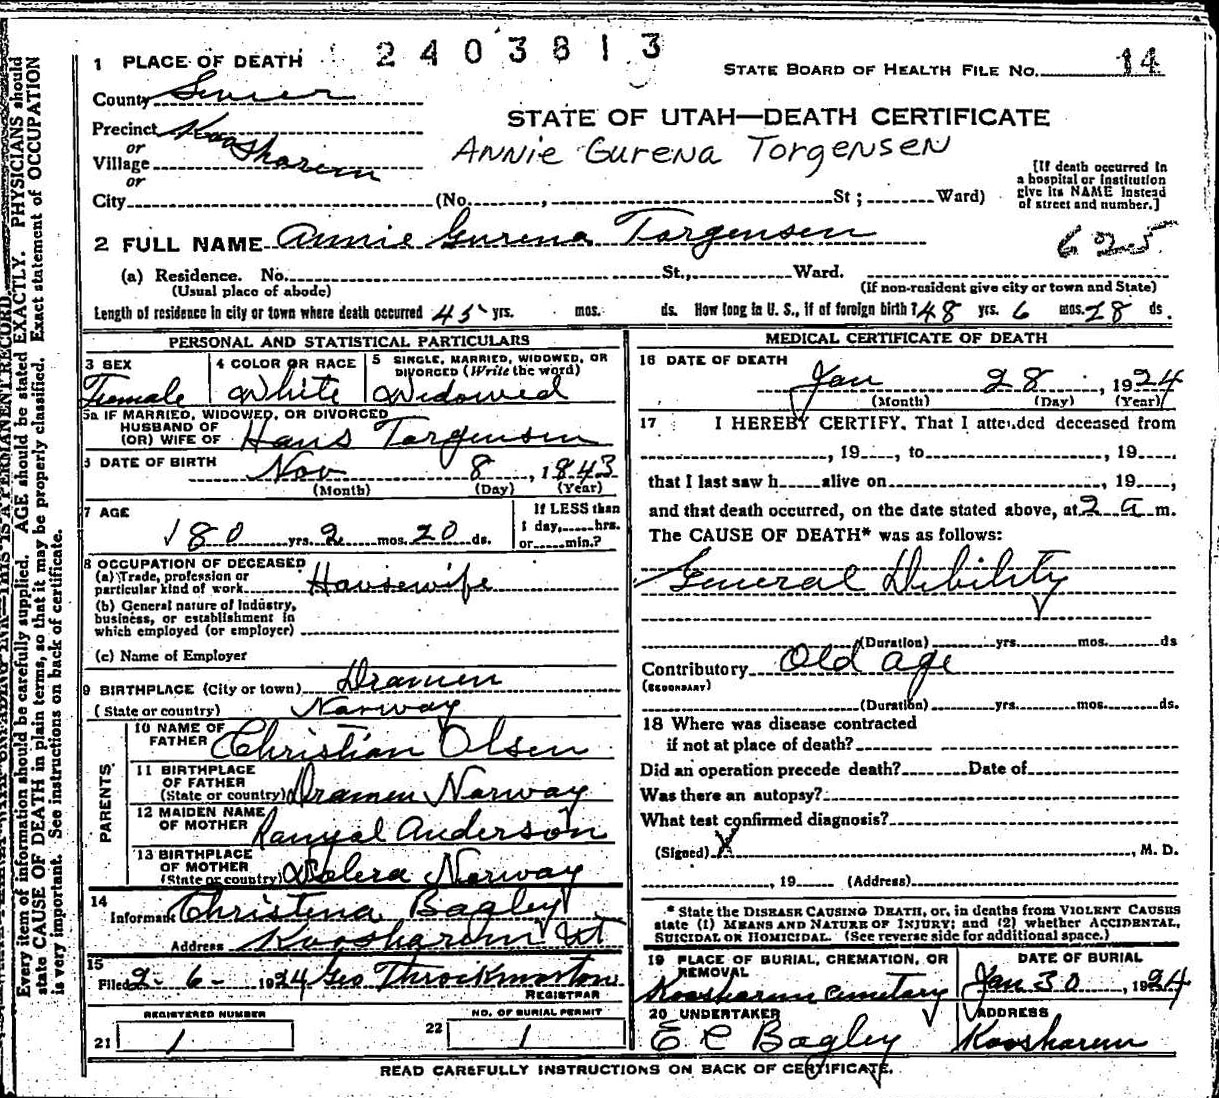 2403813
1 PLACE OF DEATH
STATE BOARD OF HEALTH FILE NO. 14
County Sevier
STATE OF UTAH—DEATH CERTIFICATE
Precinct Koosharem
or
Village
or
ANNIE GURENA TORGENSEN
[If death occurred in a hospital or institution give its NAME instead of street and number.]
City (No. , St ; Ward)
2 FULL NAME Annie Gurena Torgensen
625
(a) Residence. No. St., Ward.
(Usual place of abode) (If non-resident give city or town and State)
Length of residence in city or town where death occurred 45 yrs. mos. ds. How long in U. S., if of foreign birth? 48 yrs. 6 mos. 28 ds.
PERSONAL AND STATISTICAL PARTICULARS
3 SEX
Female
4 COLOR OR RACE
White
5 SINGLE, MARRIED, WIDOWED, OR DIVORCED (Write the word)
Widowed
5a IF MARRIED, WIDOWED, OR DIVORCED
HUSBAND OF
(OR) WIFE OF Hans Torgensen
6 DATE OF BIRTH Nov 8, 1843
(Month) (Day) (Year)
7 AGE
80 yrs. 2 mos. 20 ds.
If LESS than
1 day, hrs.
or min.?
8 OCCUPATION OF DECEASED
(a) Trade, profession or
particular kind of work Housewife
(b) General nature of Industry,
business, or establishment in
which employed (or employer)
(c) Name of Employer
9 BIRTHPLACE (City or town) Dramen
(State or country) Norway
PARENTS
10 NAME OF
FATHER Christian Olsen
11 BIRTHPLACE
OF FATHER
(State or country) Dramen Norway
12 MAIDEN NAME
OF MOTHER Anderson
13 BIRTHPLACE
OF MOTHER
(State or country) Norway
14
Informant Christena Bagley
Address Koosharem Ut
15
Filed 2-6-1924 Geo Throckmorton
REGISTRAR
REGISTERED NUMBER
21 1
NO. OF BURIAL PERMIT
22 1
MEDICAL CERTIFICATE OF DEATH
16 DATE OF DEATH
Jan 28, 1924
(Month) (Day) (Year)
17 I HEREBY CERTIFY, That I attended deceased from
, 19 , to , 19 ,
that I last saw h alive on , 19 ,
and that death occurred, on the date stated above, at 2 a m.
The CAUSE OF DEATH* was as follows:
General Debility
(Duration) yrs. mos. ds
Contributory Old age
(SECONDARY)
(Duration) yrs. mos. ds.
18 Where was disease contracted
if not at place of death?
Did an operation precede death? Date of
Was there an autopsy?
What test confirmed diagnosis?
(Signed) X , M. D.
, 19 (Address)
* State the DISEASE CAUSING DEATH, or, in deaths from VIOLENT CAUSES
state (1) MEANS AND NATURE OF INJURY; and (2) whether ACCIDENTAL,
SUICIDAL OR HOMICIDAL. (See reverse side for additional space.)
19 PLACE OF BURIAL, CREMATION, OR
REMOVAL
Koosharem Cemetary
DATE OF BURIAL
Jan 30, 1924
20 UNDERTAKER
E C Bagley
ADDRESS
Koosharem
READ CAREFULLY INSTRUCTIONS ON BACK OF CERTIFICATE.
Every item of information should be carefully supplied. AGE should be stated EXACTLY. PHYSICIANS should
state CAUSE OF DEATH in plain terms, so that it may be properly classified. Exact statement of OCCUPATION
is very important. See instructions on back of certificate.